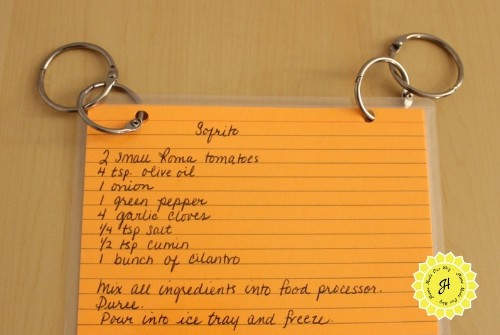 Sofrito
2 small Roma tomatoes
4 tsp. olive oil
1 onion
1 green pepper
4 garlic cloves
1/4 tsp salt
1/2 tsp cumin
1 bunch of cilantro
Mix all ingredients into food processor.
Puree.
Pour into ice tray and freeze.
H